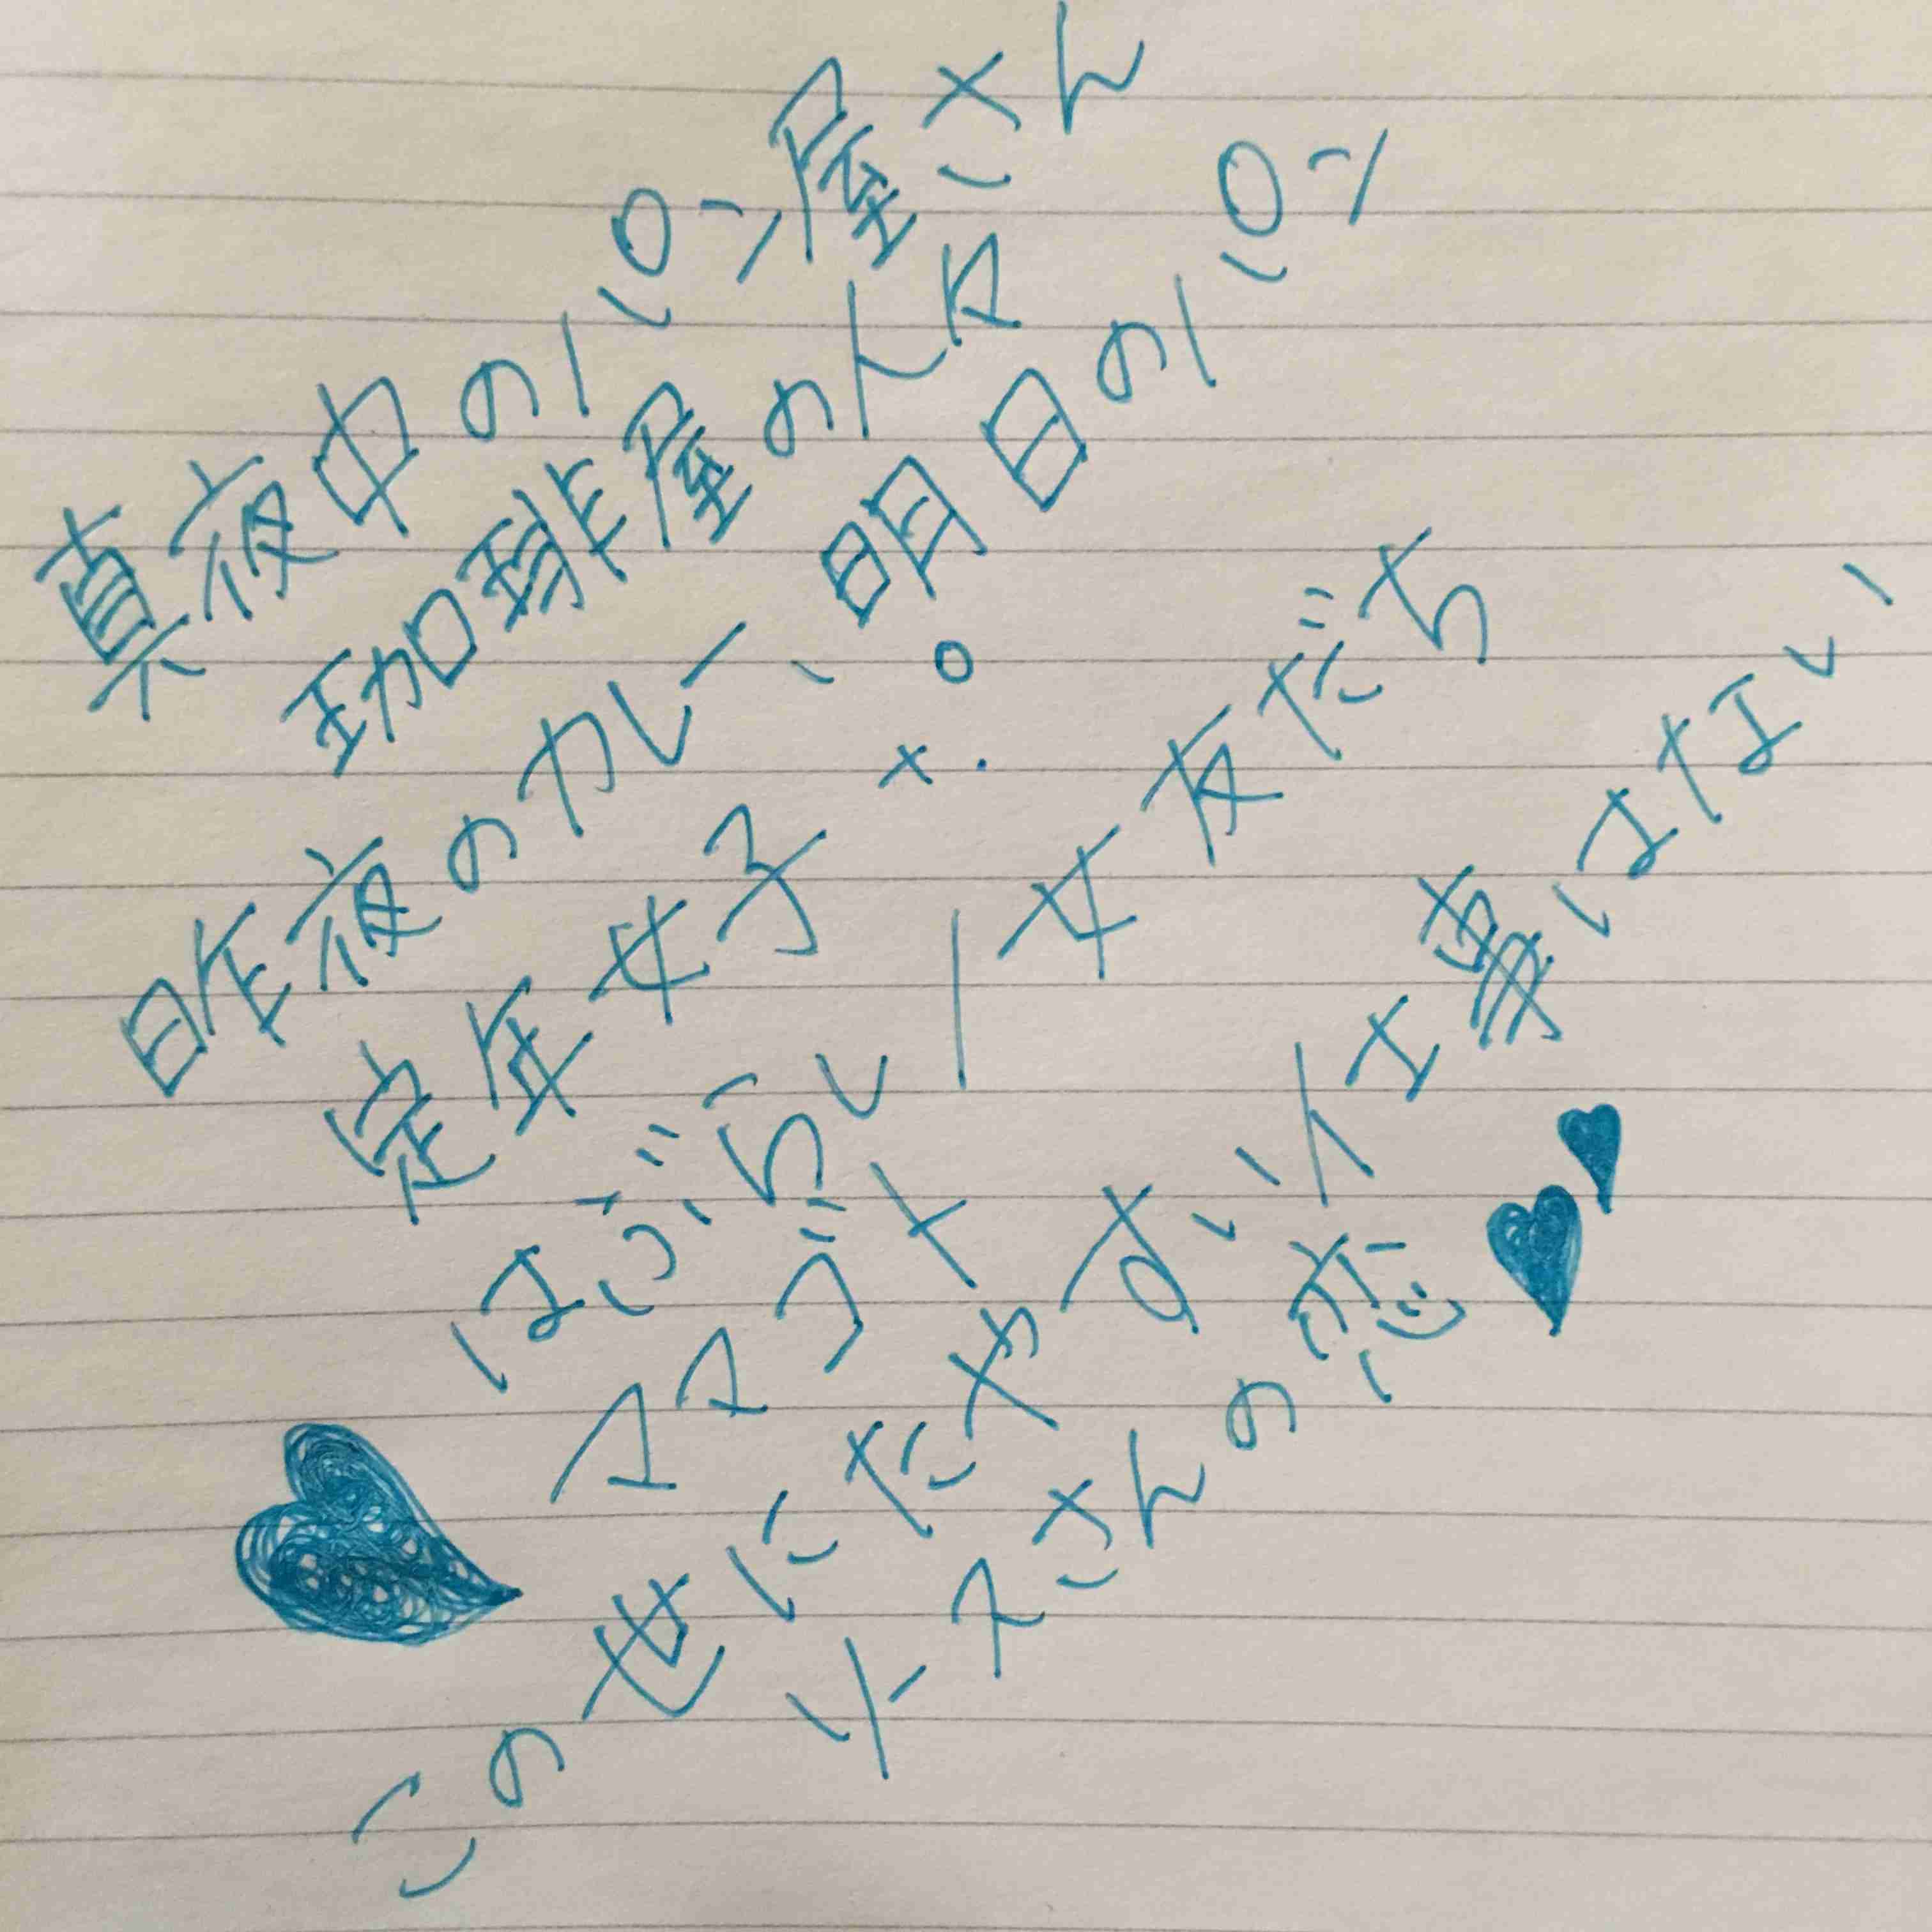 真夜中のパン屋さん
珈琲屋の人々
昨夜のカレー、明日のパン
定年女子
はぶらし/女友だち
ママゴト
この世にたやすい仕事はない
ソースさんの恋